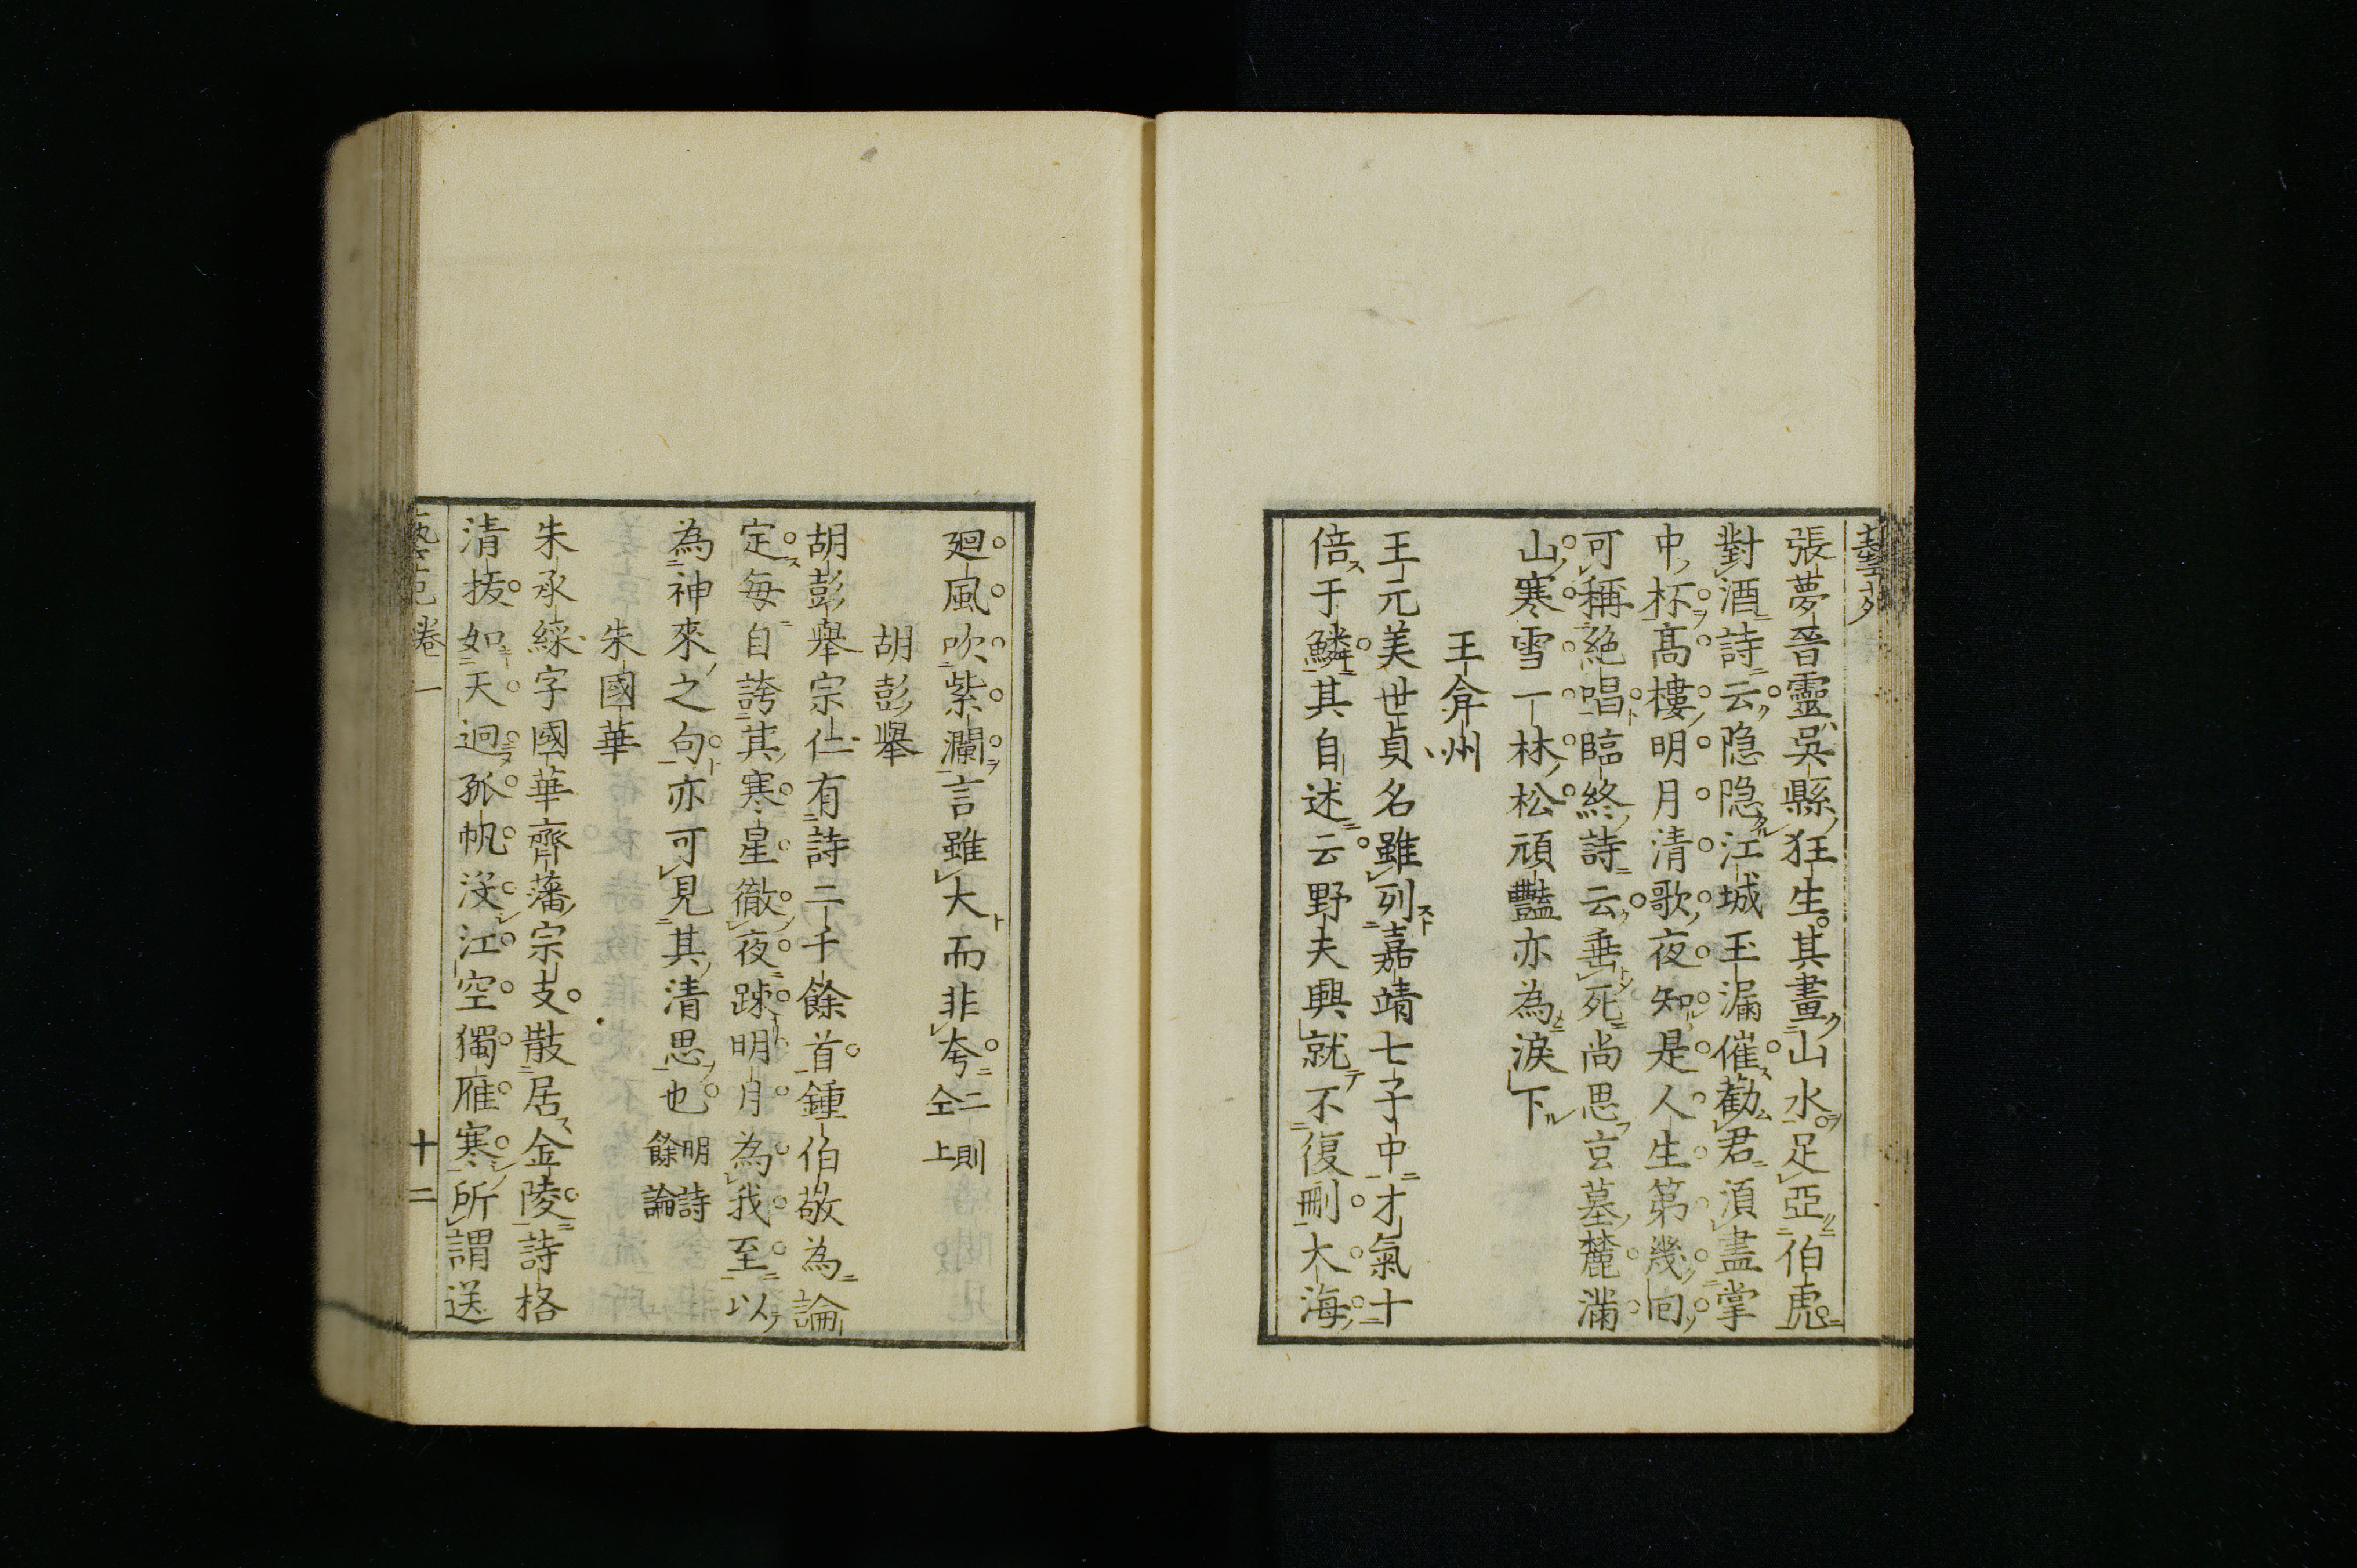 張夢晉靈吳縣狂生其畫山水足亞伯虎
對酒詩云隐隐江城玉漏催勸君須盡掌
中杯高樓明月清歌夜知是人生第幾囘
可稱絕唱臨終詩云垂死尚思玄墓麓滿
山寒雪一林松頑豔亦為淚下
王弇州
王元美世貞名雖列嘉靖七子中才氣十
倍于鱗其自述云野夫興就不復刪大海
廻風吹紫瀾言雖大而非夸二則
仝上
胡彭舉
胡彭舉宗仁有詩二千餘首鍾伯敬為論
定每自誇其寒星徹夜踈明月為我至以
為神來之句亦可見其清思也明詩
餘論
朱國華
朱承綵字國華齊藩宗支散居金陵詩格
清拔如天迥孤帆沒江空獨雁寒所謂送
藝苑卷一
十二